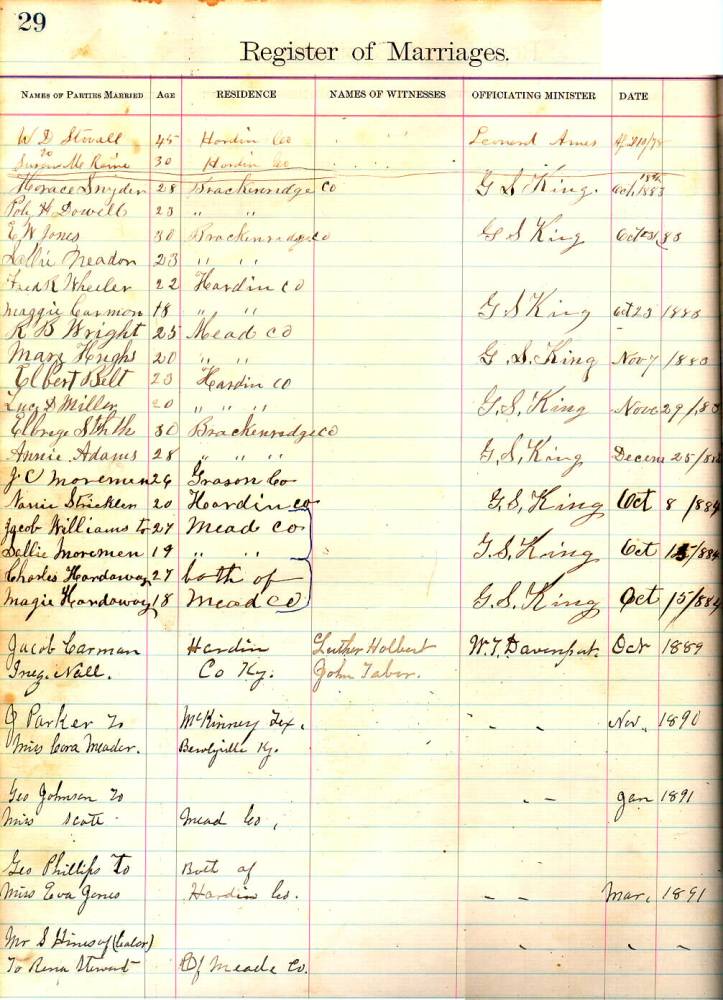 29
Register of Marriages.
NAMES OF PARTIES MARRIED AGE RESIDENCE NAMES OF WITNESSES OFFICIATING MINISTER DATE
W D Stovall 45 Hardin Co Leonard Ames
to
Susan Mc Raine 30 Hardin Co
Horace Snyder 28 Brackenridge Co G S King. Oct, 18th 1883
Polk H Dowell 23 " "
E W Jones 30 Brackenridge co G S King Oct 31 83
Sallie Meador 23 " "
Fred K Wheeler 22 Hardin Co
Maggie Carmon 18 " " G S King Oct 23 1883
R B Wright 25 Mead Co
Mary Hughs 20 " " G. S. King Nov 7 / 1883
Elbert Belt 23 Hardin Co
Lucy D Miller 20 " " " G. S. King Nove 29/,83
Elbrege Stith 30 Brackenridge co
Annie Adams 28 " " " G. S. King Decem 25/
J. C Moremen 26 Grason Co
Nanie Stricklen 20 Hardin co G. S. King Oct 8 /1884
Jacob Williams to 27 Mead Co
Sallie Moremen 19 " " G. S. King Oct 15/1884
Charles Hardaway 27 both of
Magie Hardaway 18 Mead Co G. S. King Oct 15/1884
Jacob Carman Hardin Luther Holbert W. T. Davenport. Oct 1889
Inez. Nall. Co Ky. John Tabor.
J Parker to McKinney Tex. " " Nov. 1890
Miss Cora Meador. Ky.
Geo Johnson to " " Jan 1891
Miss Scott Mead Co,
Geo Phillips To Both of
Miss Eva Jones Hardin Co. " " Mar. 1891
Mr S Hines of (Color) " " "
To Rena Stewart Of Meade Co.